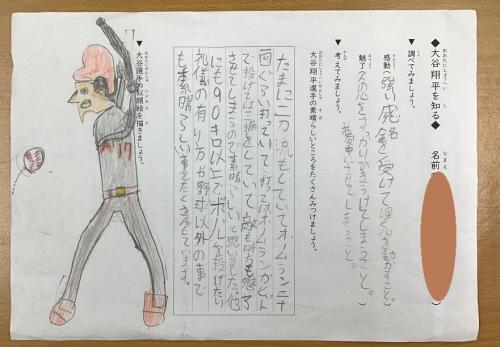 ◆大谷翔平を知る◆ 名前( )
▼調べてみましょう。
感動(強い感銘を受けて深く心を動かすこと。)
魅了(人の心をすっかりひきつけてしまうこと。夢中にさせてしまうこと。)
▼考えてみましょう。
大谷翔平選手の素晴らしいところをたくさんみつけましょう。
たまに二刀流もしていてホームラン三十
回ぐらい打っていて打ってはホームランかヒット
で投げては三振をしていて敵も味方も魅了
させてしまうのて素晴らしいと思いました。他
にも90キロ以上でボールを投げたい
礼儀の有り方や野球以外の事で
も素晴らしい事をたくさんしています。
▼大谷選手の似顔絵を描きましょう。